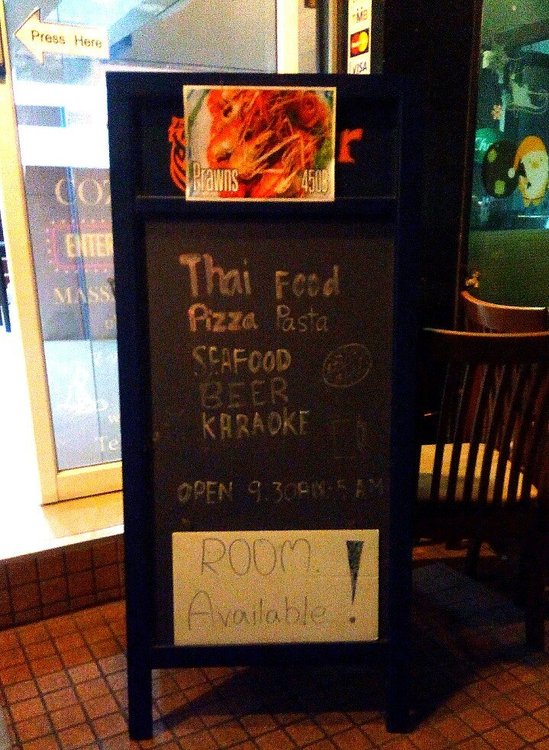 Press Here
VISA
Prawns 450฿
COZ
ENTER
MASS
Thai Food
Pizza Pasta
SEAFOOD
BEER
KARAOKE
OPEN 9.30AM-5AM
ROOM.
Available!